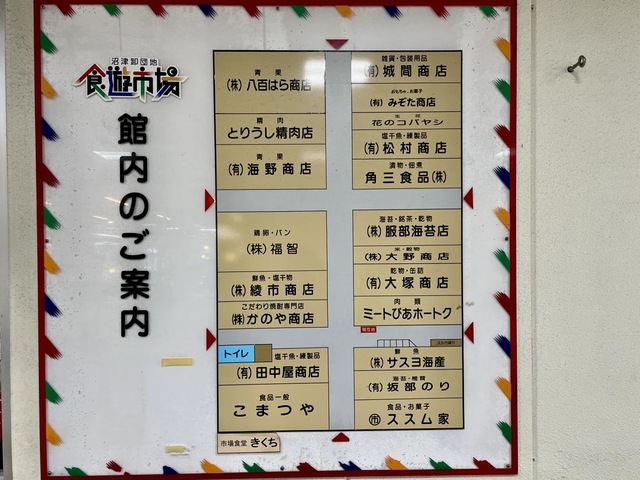 沼津卸団地
食遊市場
館内のご案内
青果
(株) 八百はら商店
精肉
とりうし精肉店
青果
(有) 海野商店
鶏卵・パン
(株) 福智
鮮魚・塩干物
(株) 綾市商店
こだわり焼酎専門店
(株) かのや商店
トイレ
塩干魚・練製品
(有) 田中屋商店
食品一般
こまつや
市場食堂 きくち
雑貨・包装用品
(有) 城間商店
おもちゃ、お菓子
(有) みぞた商店
生花
花のコバヤシ
塩干魚・練製品
(有) 松村商店
漬物・佃煮
角三食品(株)
海苔・銘茶・乾物
(株) 服部海苔店
米・穀物
(株) 大野商店
乾物・缶詰
(有) 大塚商店
肉類
ミートぴあホートク
現在地
鮮魚
(株) サスヨ海産
(有) 坂部のり
食品・お菓子
㊑ ススム家